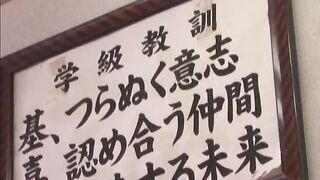 学級教訓
基、つらぬく意志
喜、認め合う仲間
する未来